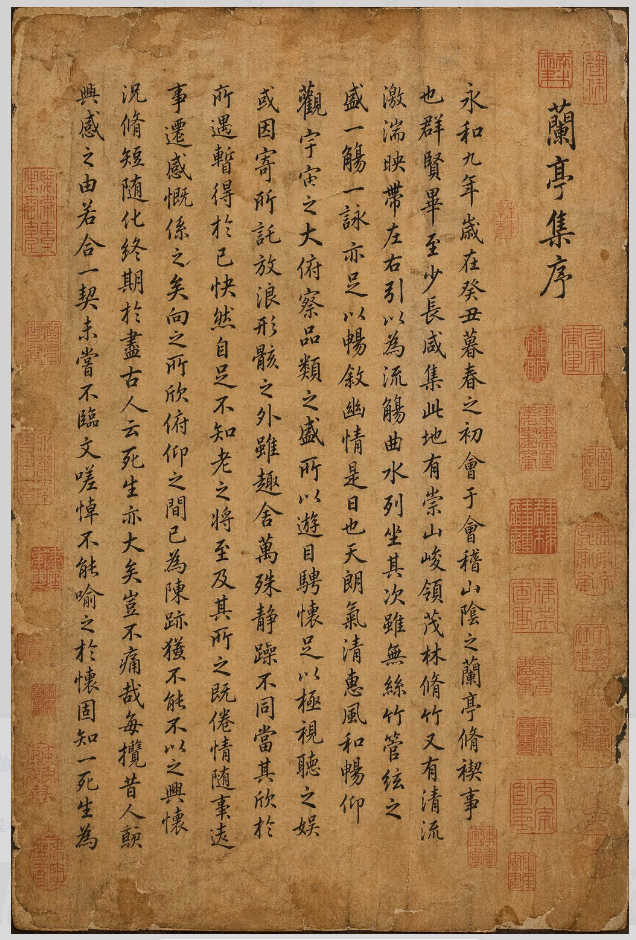 蘭亭集序
永和九年歲在癸丑暮春之初會于會稽山陰之蘭亭脩禊事
也群賢畢至少長咸集此地有崇山峻領茂林脩竹又有清流
激湍映帶左右引以為流觴曲水列坐其次雖無絲竹管絃之
盛一觴一詠亦足以暢敘幽情是日也天朗氣清惠風和暢仰
觀宇宙之大俯察品類之盛所以遊目騁懷足以極視聽之娛
或因寄所託放浪形骸之外雖趣舍萬殊静躁不同當其欣於
所遇暫得於己快然自足不知老之将至及其所之既倦情随事
事遷感慨係之矣向之所欣俯仰之間已為陳跡猶不能不以之興懷
况脩短随化終期於盡古人云死生亦大矣豈不痛哉每攬昔人
興感之由若合一契未嘗不臨文嗟悼不能喻之於懷固知一死生為